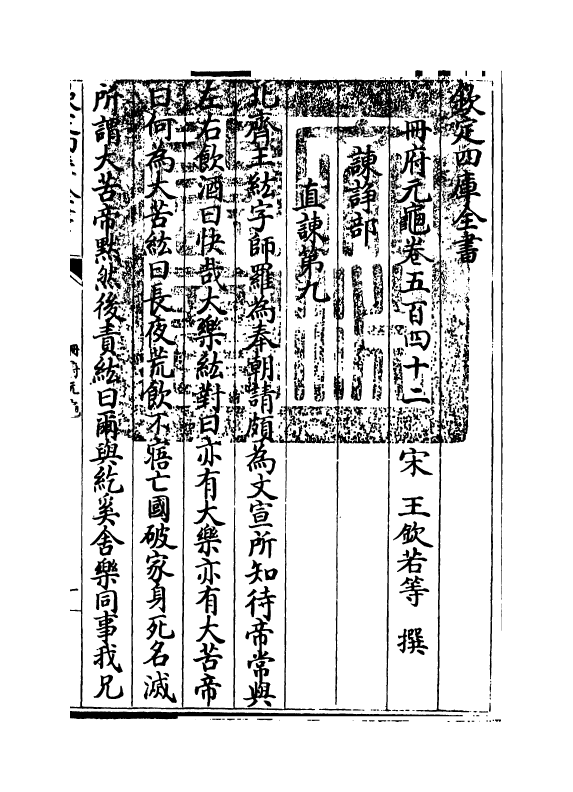 欽定四庫全書
冊府元龜卷五百四十二
宋 王欽若等 撰
諫諍部
直諫第九
北齊王紘字師羅為奉朝請頗為文宣所知待帝常與
左右飲酒曰快哉大樂紘對曰亦有大樂亦有大苦帝
曰何為大苦紘曰長夜荒飲不寤亡國破家身死名滅
所謂大苦帝黙然後責紘曰爾與紇奚舍樂同事我兄
冊府元龜